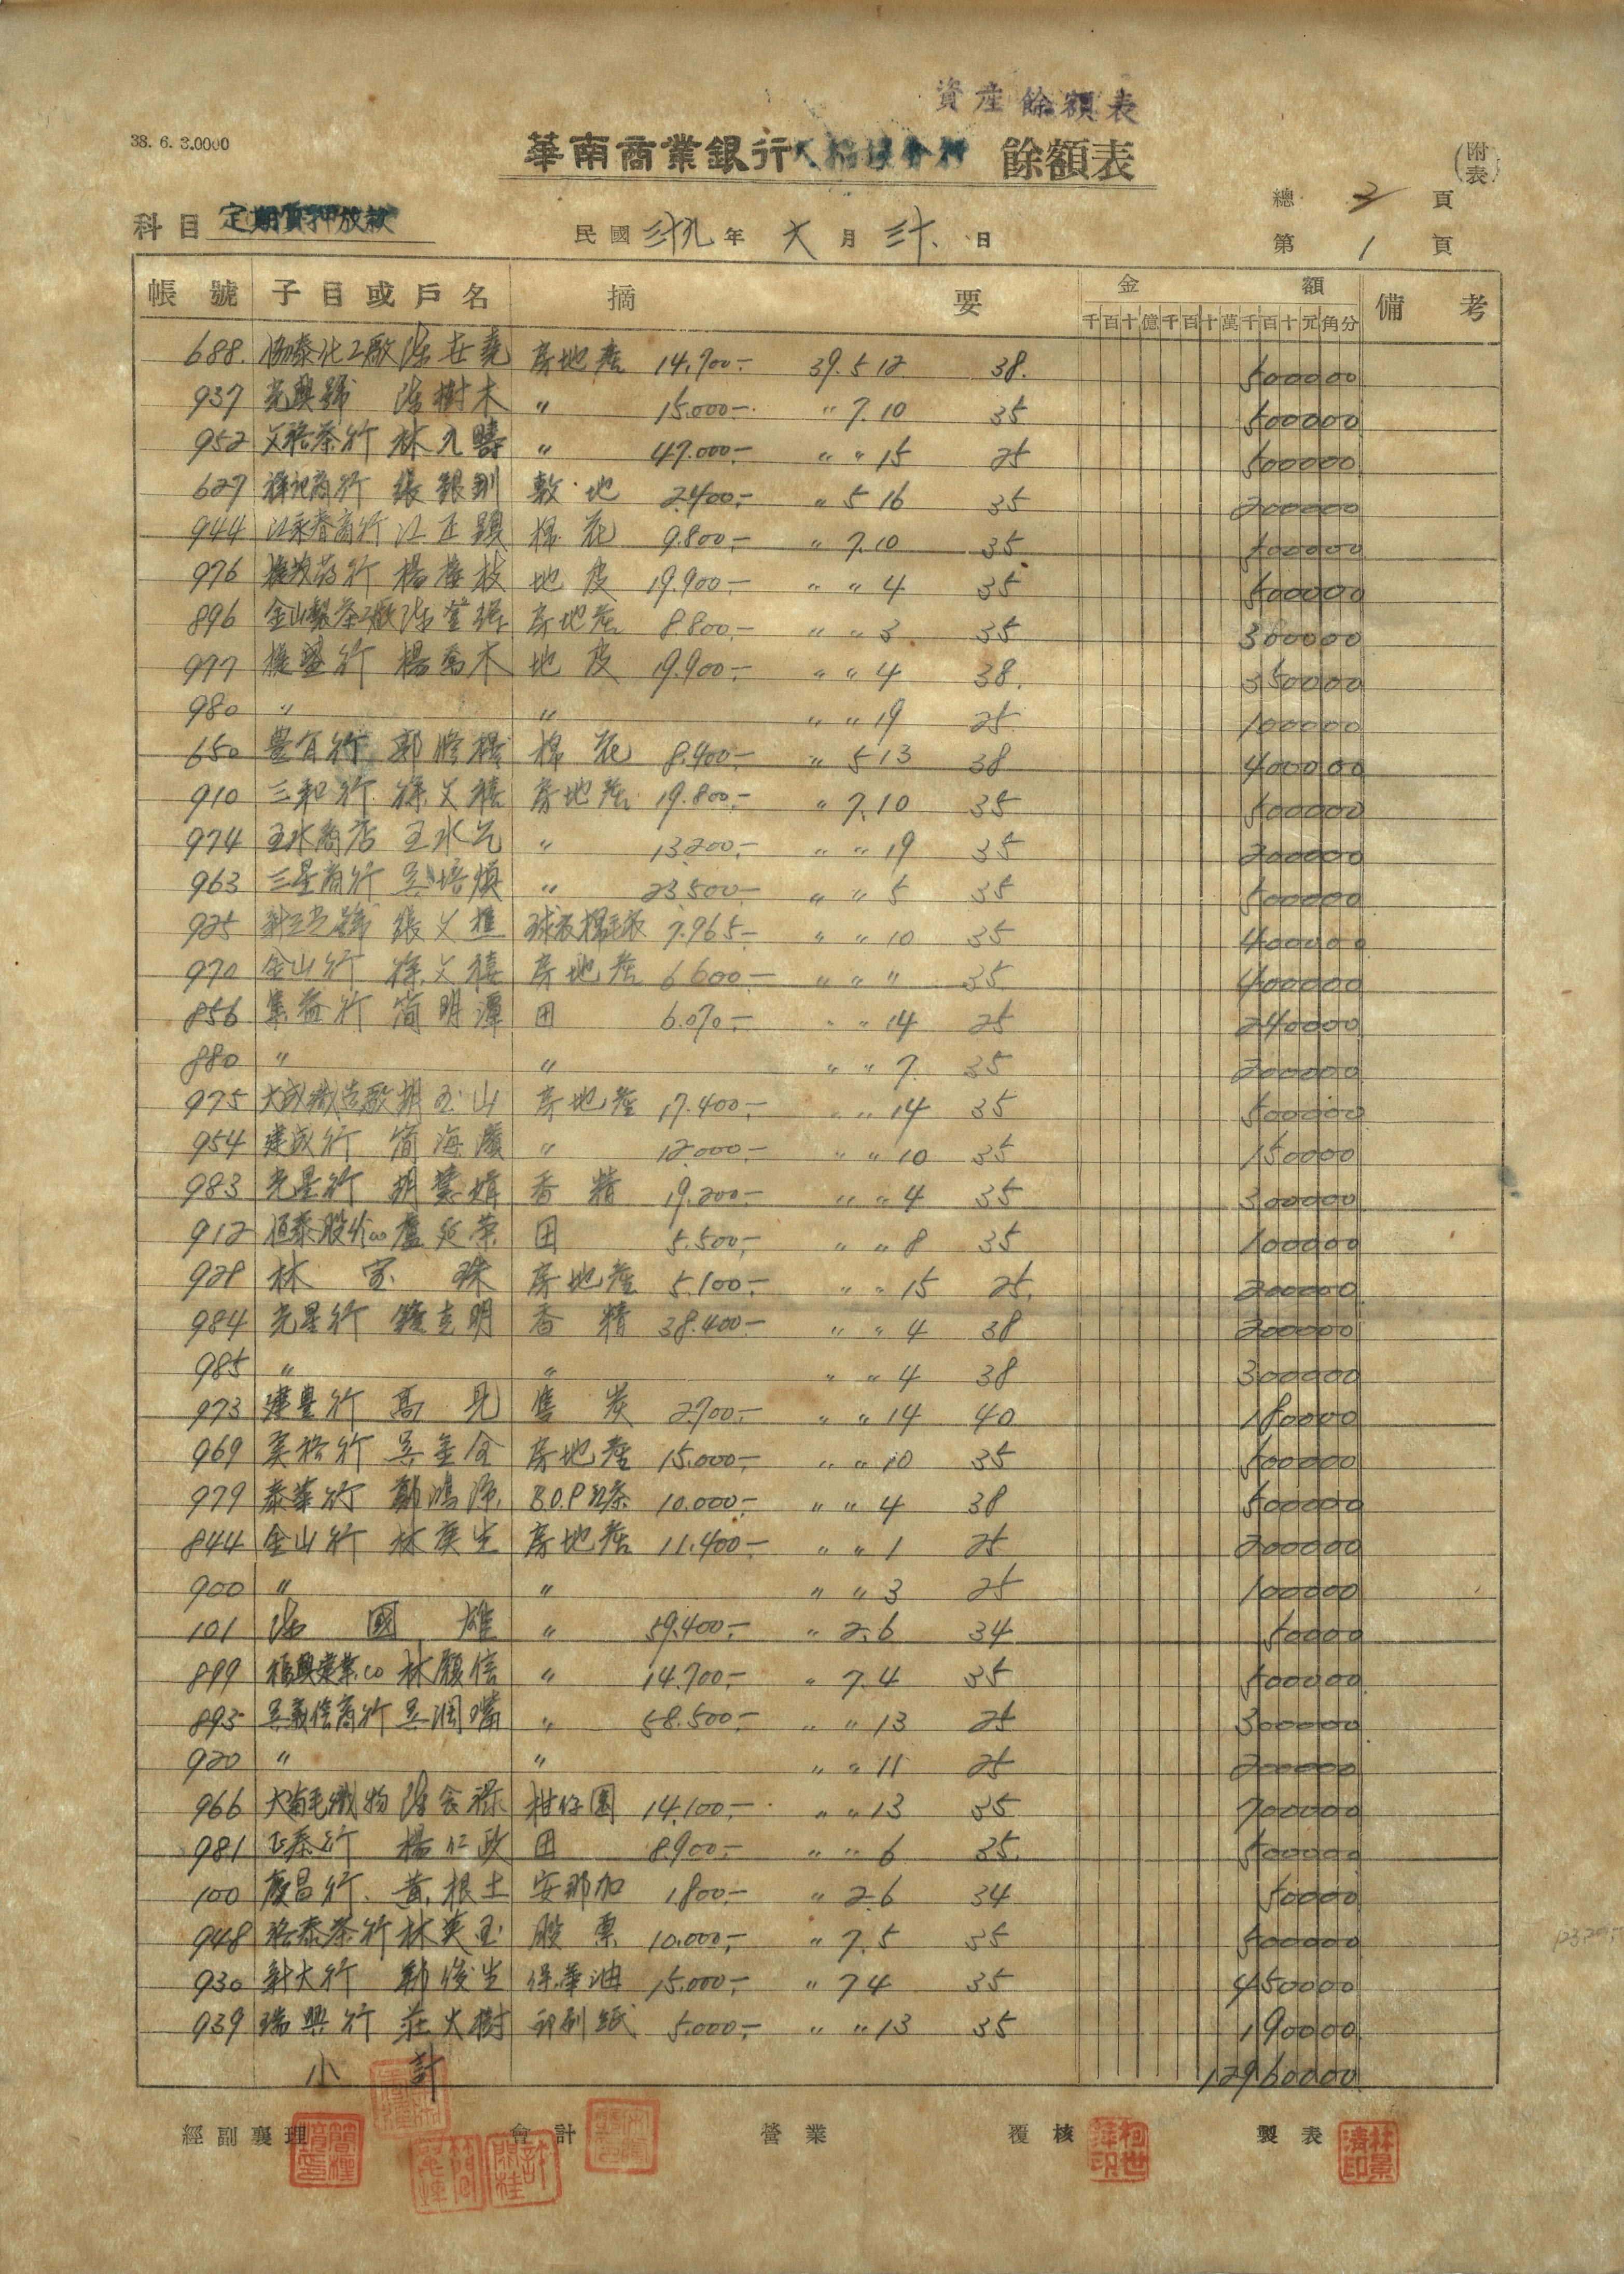 資產餘額表
38. 6. 3.0000
華南商業銀行 餘額表
(附表)
總 3 頁
科目 定期質押放款
民國 卅九 年 六 月 三十 日
第 1 頁
帳號 子目或戶名 摘要 金額 備考
千百十億千百十萬千百十元角分
688. 協泰化工廠 房地產 14.900.- 39.5 12 38. 500000
937 光興號 陳樹木 〃 15.000- 〃 7.10 35 500000
952 文裕茶行 林九疇 〃 47.000- 〃 〃 15 25 500000
627 祥記商行 張銀釧 敷地 2.400- 〃 5 16 35 200000
944 江永春商行 江正顯 棉花 9.800- 〃 7.10 35 500000
976 行 楊 枝 地皮 19.900- 〃 〃 4 35 500000
896 金山製茶工廠 陳登 房地產 8.800- 〃 〃 3 35 300000
977 行 楊喬木 地皮 19.900- 〃 〃 4 38. 350000
980 〃 〃 〃 〃 19 25 100000
650 豊行 郭 棉花 8.900- 〃 5 13 38 400000
910 三和行 徐文禧 房地產 19.800- 〃 7.10 35 500000
974 玉水商店 王水 〃 13.200- 〃 〃 19 35 200000
963 三星商行 吳培 〃 23.500- 〃 〃 5 35 500000
925 號 張文 球衣棉毛衣 7.965- 〃 〃 10 35 400000
970 金山行 徐文禧 房地產 6600- 〃 〃 〃 35 400000
856 集益行 簡明潭 田 6.070- 〃 〃 14 25 240000
880 〃 〃 〃 〃 7. 35 200000
975 大成織造廠 胡玉山 房地產 17.400- 〃 〃 14 35 500000
954 建成行 簡海 〃 12.000- 〃 〃 10 35 150000
983 光星行 胡 娟 香精 19.200- 〃 〃 4 35 300000
912 恒泰股份co 盧延 田 5.500- 〃 〃 8 35 100000
928 林宝珠 房地產 5.100- 〃 〃 15 25. 200000
984 光星行 鍾克明 香精 38.400- 〃 〃 4 38 200000
985 〃 〃 〃 〃 4 38 300000
973 建豊行 高見 炭 2.700- 〃 〃 14 40 180000
969 裕行 吳金 房地產 15.000- 〃 〃 10 35 500000
979 泰華行 鄭鴻源 B.O.P紅茶 10.000- 〃 〃 4 38 500000
844 金山行 林庚生 房地產 11.400- 〃 〃 1 25 200000
900 〃 〃 〃 〃 3 25 100000
101 陳國雄 〃 59.400- 〃 2.6 34 50000
899 福興實業.co 林 信 〃 14.700- 〃 7.4 35 500000
893 吳義信商行 吳 〃 58.500- 〃 〃 13 25 300000
920 〃 〃 〃 〃 11 25 200000
966 大南毛織物 陳 祿 柑仔園 14.100- 〃 〃 13 35 700000
981 正泰行 楊仁政 田 8.900- 〃 〃 6 35. 500000
100 慶昌行 黃根土 安那加 1.800- 〃 2.6 34 50000
948 裕泰茶行 林英玉 股票 10.000- 〃 7.5 35 500000
930 新大行 俊生 保革油 15.000- 〃 7 4 35 450000
939 瑞興行 莊火樹 印刷紙 5.000- 〃 〃 13 35 190000
小計 12960000
經副襄理 會計 營業 覆核 製表
林景清印